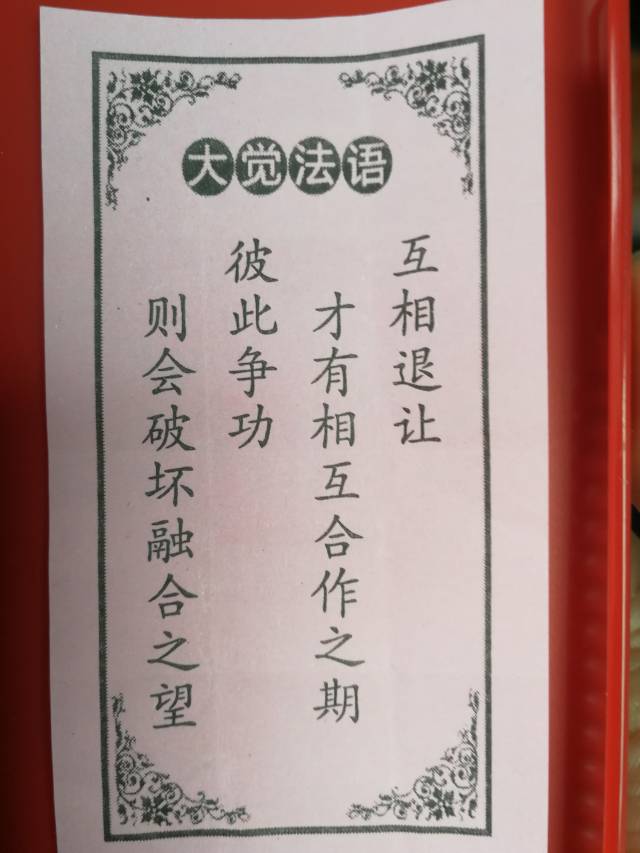 大觉法语
互相退让
才有相互合作之期
彼此争功
则会破坏融合之望